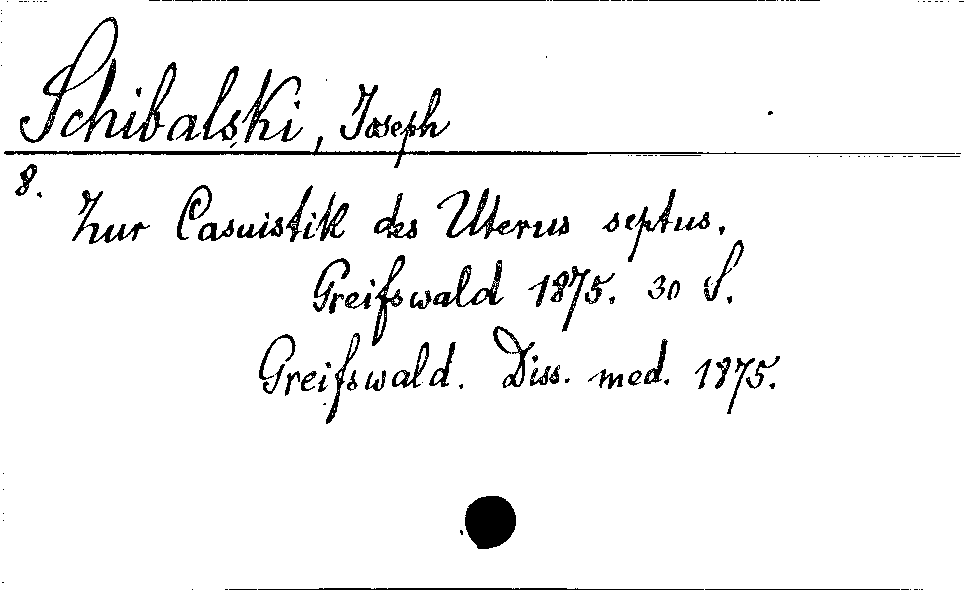 Schibalski, Joseph
8.
Zur Casuistik des Uterus septus.
Greifswald 1875. 30 S.
Greifswald. Diss. med. 1875.